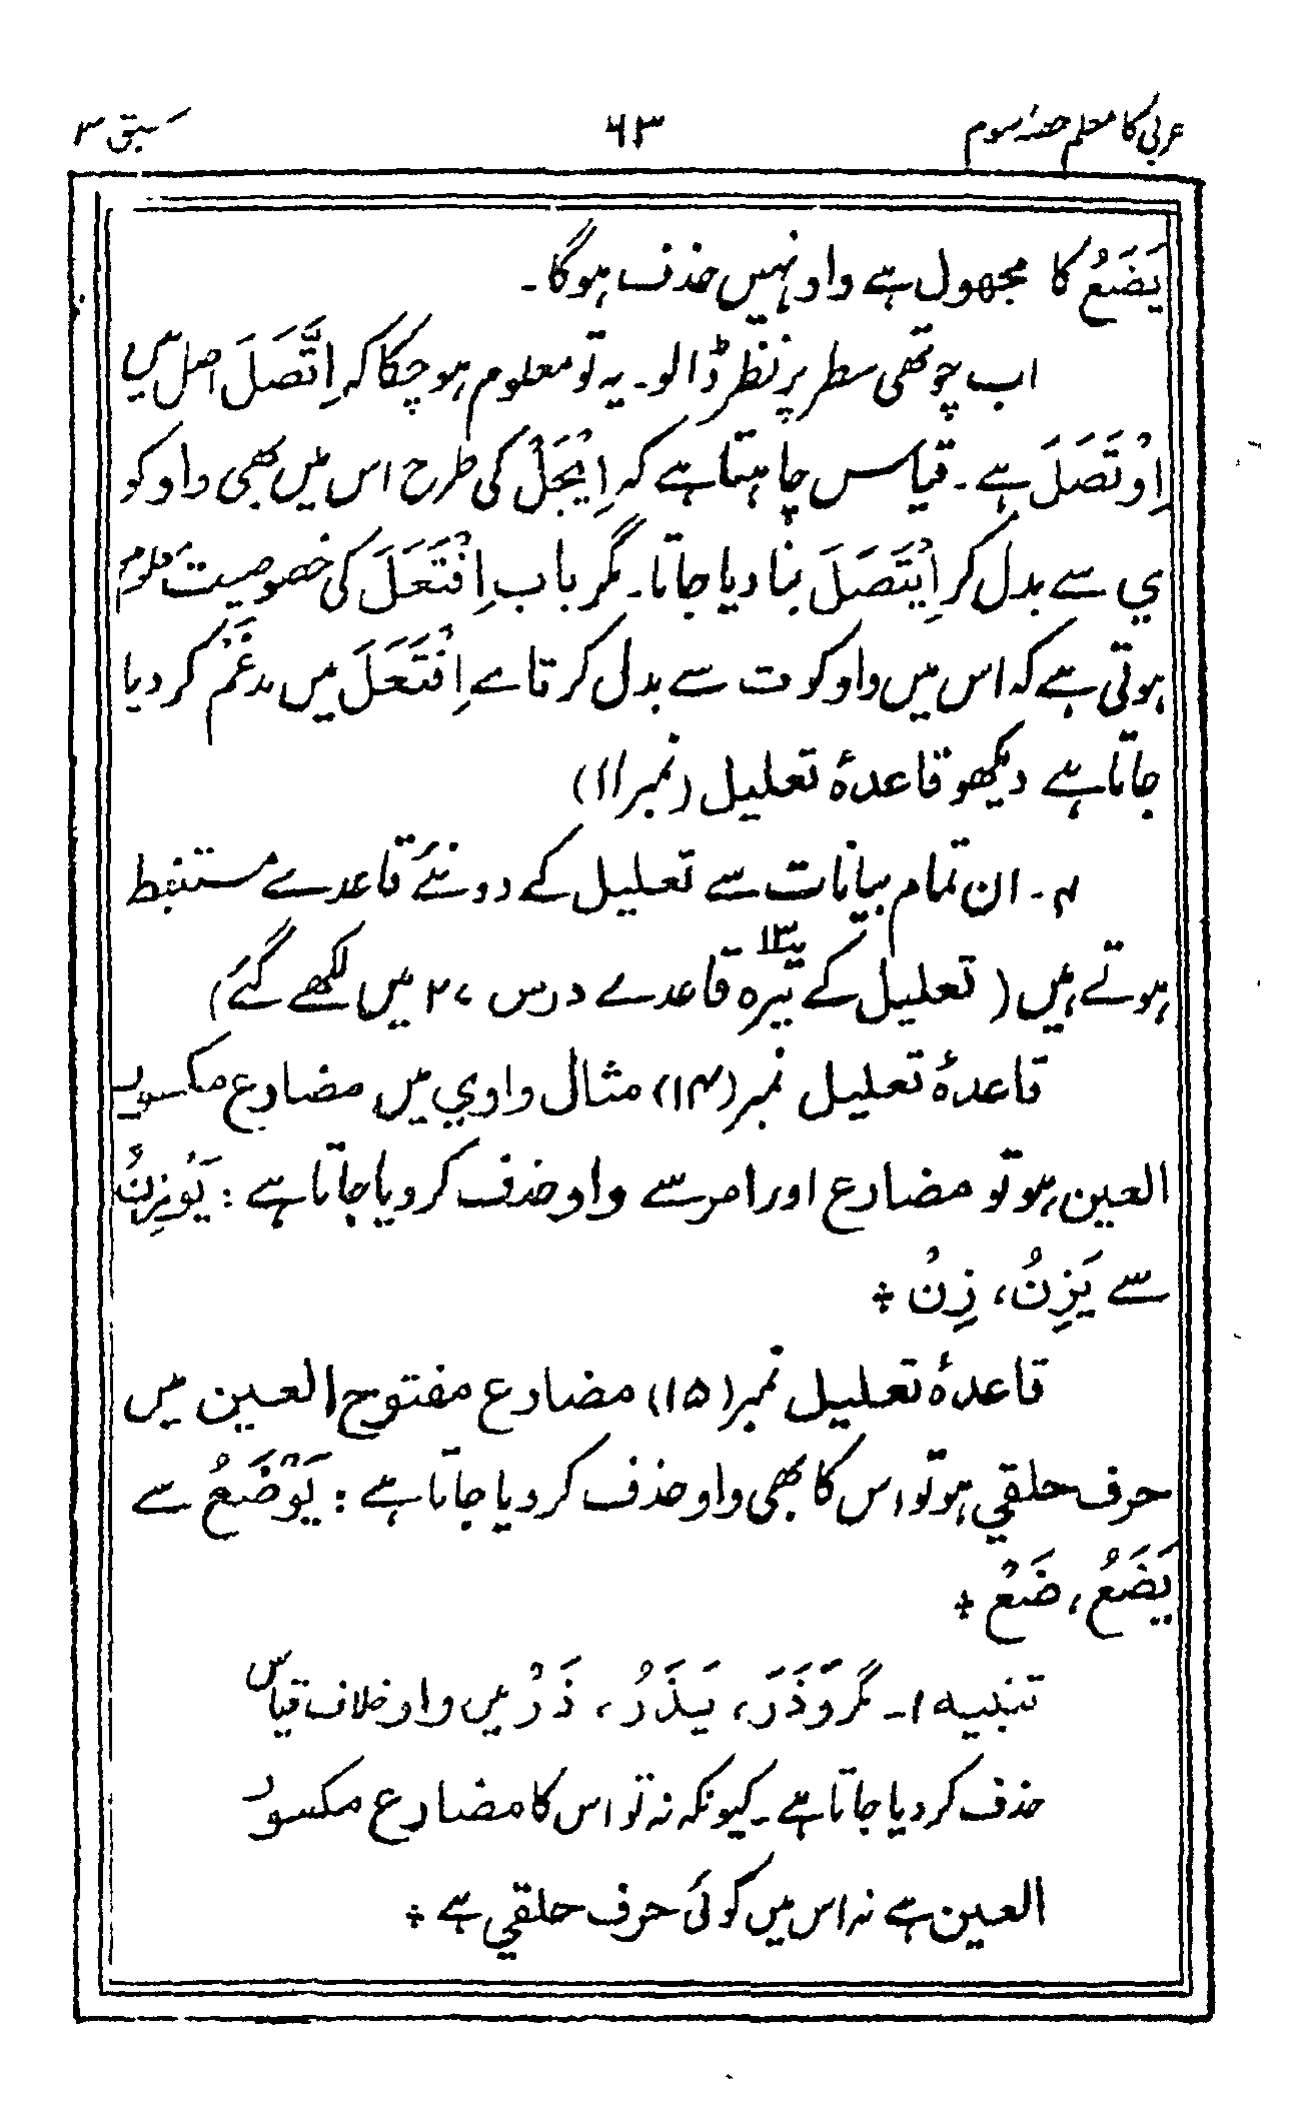 عربی کا معلم حصۂ سوم
۶۳
سبق ۳
يَضَعُ کا مجھول ہے واو نہیں حذف ہوگا۔
اب چوتھی سطر پر نظر ڈالو۔ یہ تو معلوم ہوچکا کہ اِتَّصَلَ اصل میں
اِوْتَصَلَ ہے۔ قیاس چاہتا ہے کہ اِيْجَلْ کی طرح اس میں بھی واو کو
ي سے بدل کر اِيْتَصَلَ بنا دیا جاتا۔ مگر باب اِفْتَعَلَ کی خصوصیت معلوم
ہوتی ہے کہ اس میں واو کو ت سے بدل کر تاے اِفْتَعَلَ میں مدغم کر دیا
جاتا ہے دیکھو قاعدۂ تعلیل (نمبر ۱۱)
۴۔ ان تمام بیانات سے تعلیل کے دو نئے قاعدے مستنبط
ہوتے ہیں (تعلیل کے تیرہ ۱۳ قاعدے درس ۲۷ میں لکھے گئے)
قاعدۂ تعلیل نمبر (۱۴) مثال واوي میں مضارع مکسور
العین ہو تو مضارع اور امر سے واو حذف کر دیا جاتا ہے : يَوْزِنُ
سے يَزِنُ، زِنْ ÷
قاعدۂ تعلیل نمبر (۱۵) مضارع مفتوح العین میں
حرف حلقي ہو تو اس کا بھی واو حذف کر دیا جاتا ہے : يَوْضَعُ سے
يَضَعُ، ضَعْ ÷
تنبیہ ۱۔ مگر وَذَرَ، يَذَرُ، ذَرْ میں واو خلاف قیاس
حذف کر دیا جاتا ہے۔ کیونکہ نہ تو اس کا مضارع مکسور
العین ہے نہ اس میں کوئی حرف حلقي ہے ÷